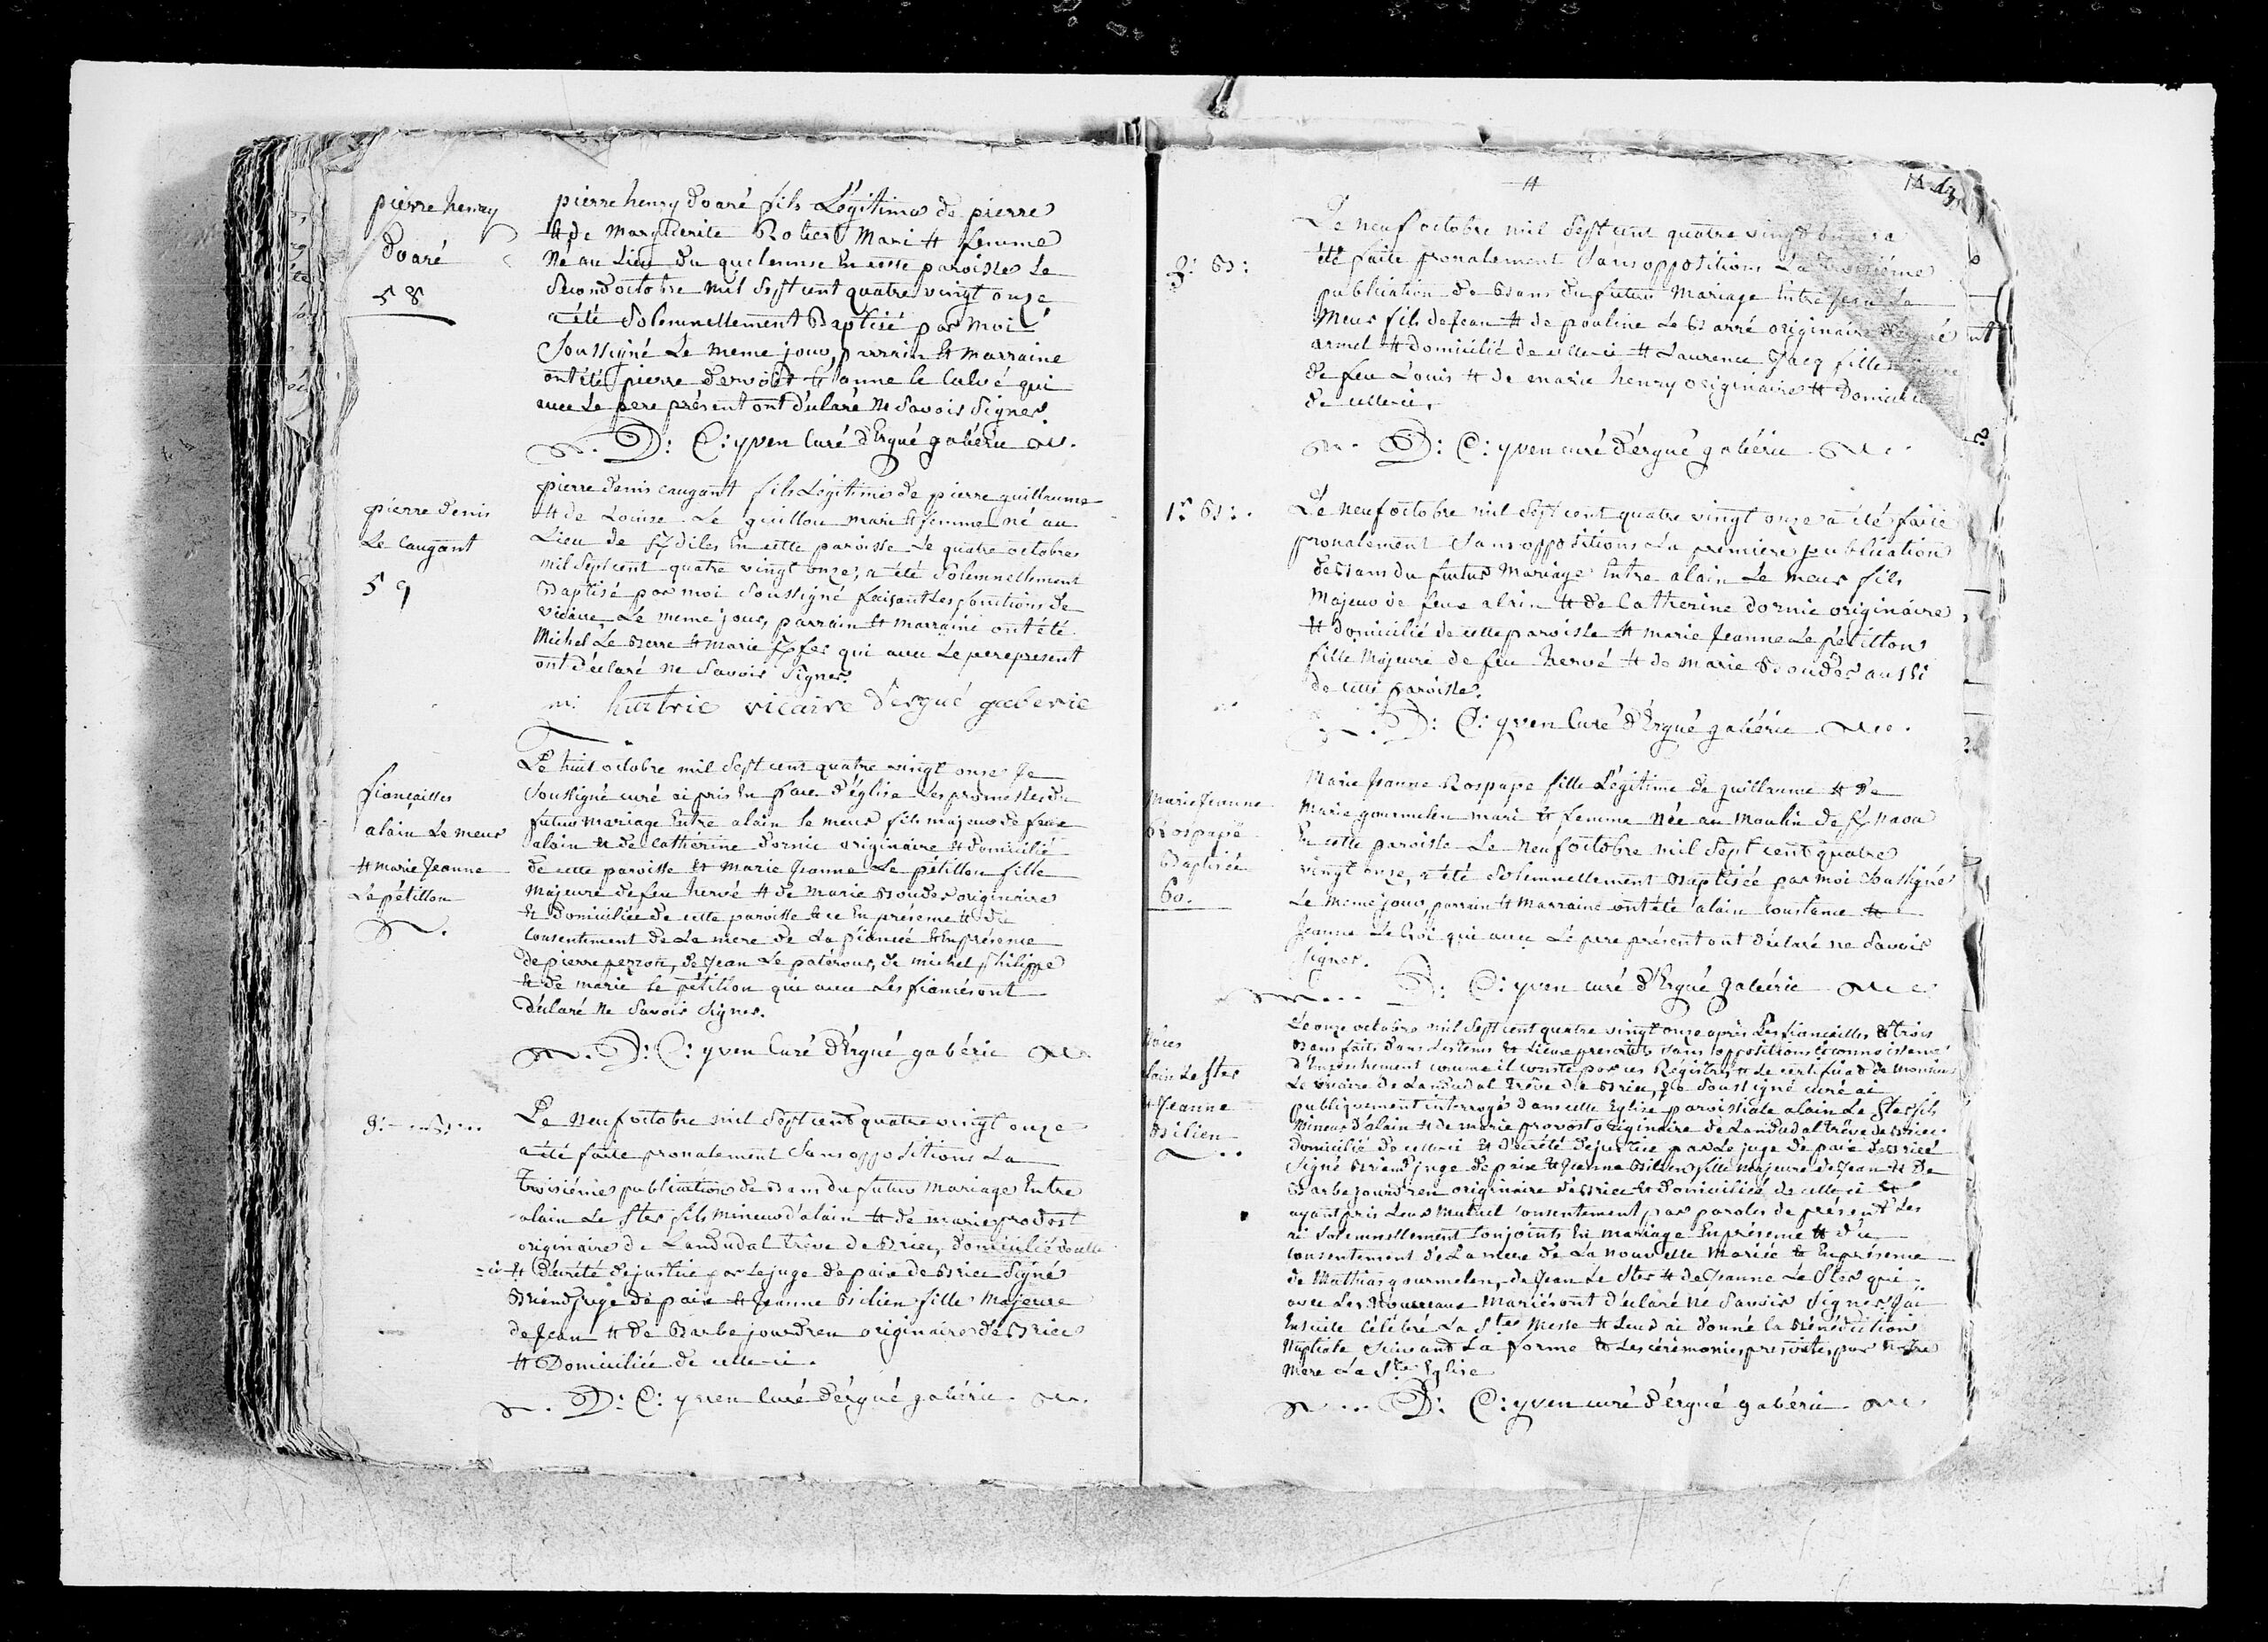 pierre henry
doaré
58
pierre henry doaré fils Légitime de pierre
et de Marguerite Rolland Mari et femme
Né au Lieu du quelennec En cette paroisse Le
second octobre mil sept cent quatre vingt onze
a été solemnellement Baptisé par moi
soussigné Le meme jour, parrain et marraine
ont été pierre et anne le Calvé qui
avec Le pere présent ont déclaré Ne savoir signer.
D: C: yven Curé d'Ergué gabéric
pierre denis
Le Caugant
59
pierre denis caugant fils Légitime de pierre guillaume
et de Louise Le guillou mari et femme né au
Lieu de En cette paroisse Le quatre octobre
mil sept cent quatre vingt onze, a été solemnellement
Baptisé par moi soussigné faisant Les fonctions de
vicaire Le meme jour, parrain et marraine ont été
Michel Le Berre et marie qui avec Le pere present
ont déclaré ne savoir signer.
vicaire d'ergué gaberic
fiançailles
alain Le meur
et marie Jeanne
Le pétillon
Le huit octobre mil sept cent quatre vingt onze Je
soussigné curé ai pris En face d'église Les promesses du
futur mariage Entre alain le meur fils majeur de feu
alain et de Cathérine dornic originaire et domicilié
de cette paroisse et Marie Jeanne Le pétillon fille
Majeure de feu hervé et de Marie Boudes originaire
Et domiciliée de cette paroisse et ce En présence et du
Consentement de La mere de La fiancée et En présence
de pierre perrott, de Jean Le paterour, de michel philippe
et de marie Le pétillon qui avec Les fiancés ont
déclaré Ne savoir signer.
D: C: yven Curé d'Ergué gabéric
3: B:
Le Neuf octobre mil sept cent quatre vingt onze
a été faite pronalement sans oppositions La
troisiéme publication de Bans du futur mariage Entre
alain Le ster fils Mineur d'alain et de marie provost
originaire de Landudal trêve de Briec, domicilié de celle
-ci et décrété de justice par Le juge de paix de Briec signé
Briend juge de paix et Jeanne Bilien fille Majeure
de Jean et de Barbe jourdren originaire de Briec
et Domiciliée de celle-ci.
D: C: yven Curé d'érgué gabéric
3: B:
Le neuf octobre mil sept cent quatre vingt onze a
été faite pronalement sans oppositions La troisiéme
publication de Bans du futur Mariage Entre Jean Le
Meur fils de Jean et de pauline Le Barré originaire d'ergué
armel et domicilié de celle-ci et Laurence Jacq fille
de feu Louis et de marie henry originaire et Domiciliée
de celle-ci.
D: C: yven curé d'érgué gabéric
1r: B:
Le Neuf octobre mil sept cent quatre vingt onze a été faite
pronalement sans oppositions La premiere publication
de Bans du futur mariage Entre alain Le meur fils
Majeur de feu alain et de Catherine dornic originaire
et domicilié de cette paroisse et marie Jeanne Le pétillon
fille Majeure de feu hervé et de marie Boudes aussi
de cette paroisse.
D: C: yven Curé d'Ergué gabéric
Marie Jeanne
Rospape
Baptisée
60.
Marie Jeanne Rospape fille Légitime de guillaume et de
Marie gourmelen mari et femme Née au Moulin de
En cette paroisse Le Neuf octobre mil sept cent quatre
vingt onze, a été solemnellement Baptisée par moi soussigné
Le meme jour, parrain et Marraine ont été alain Coustans et
Jeanne Le Roi qui avec Le pere présent ont déclaré ne savoir
signer.
D: C: yven curé d'Ergué gabéric
Nôces
Le ster
et Jeanne
Bilien
Le onze octobre mil sept cent quatre vingt onze après Les fiancailles et trois
Bans faits dans Les tems et Lieux prescrits sans oppositions ni connoissance
d'Empechement comme il conste par ces Régistres et Le certificat de Monsieur
Le vicaire de Landudal trêve de Briec, Je soussigné curé ai
publiquement interrogé dans cette Eglise paroissiale alain Le ster fils
Mineur d'alain et de marie provost originaire de Landudal trêve de Briec
domicilié de celle-ci et décrété de justice par Le juge de paix de Briec
signé Briend juge de paix et Jeanne Bilien fille Majeure de Jean et de
Barbe jourdren originaire de Briec et domiciliée de celle-ci et
ayant pris Leur Mutuel Consentement par paroles de présent Les
ai solemnellement Conjoints En mariage En présence et du
Consentement de La mere de La Nouvelle Mariée et En présence
de Mathias gourmelen, de Jean Le Ster et de Jeanne Le Ster qui
avec Les Nouveaux Mariés ont déclaré Né savoir signer. J'ai
Ensuite Célébré La Ste Messe et Leur ai donné la Bénédiction
Nuptiale suivant La forme et Les cérémonies prescrites par Notre
Mere La Ste Eglise
D: C: yven curé d'érgué gabéric